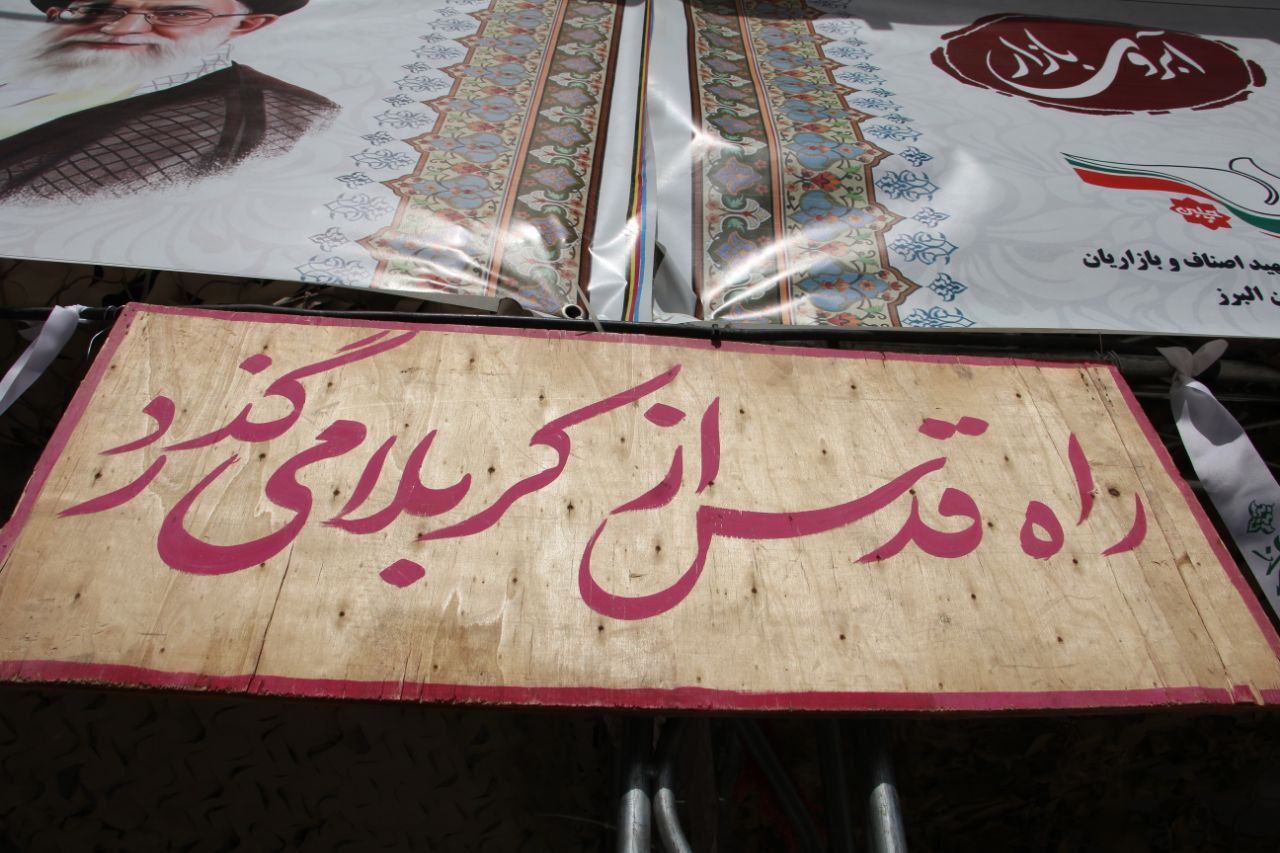 ابروی بازار
اصناف و بازاریان
البرز
راه قدس از کربلا می گذرد